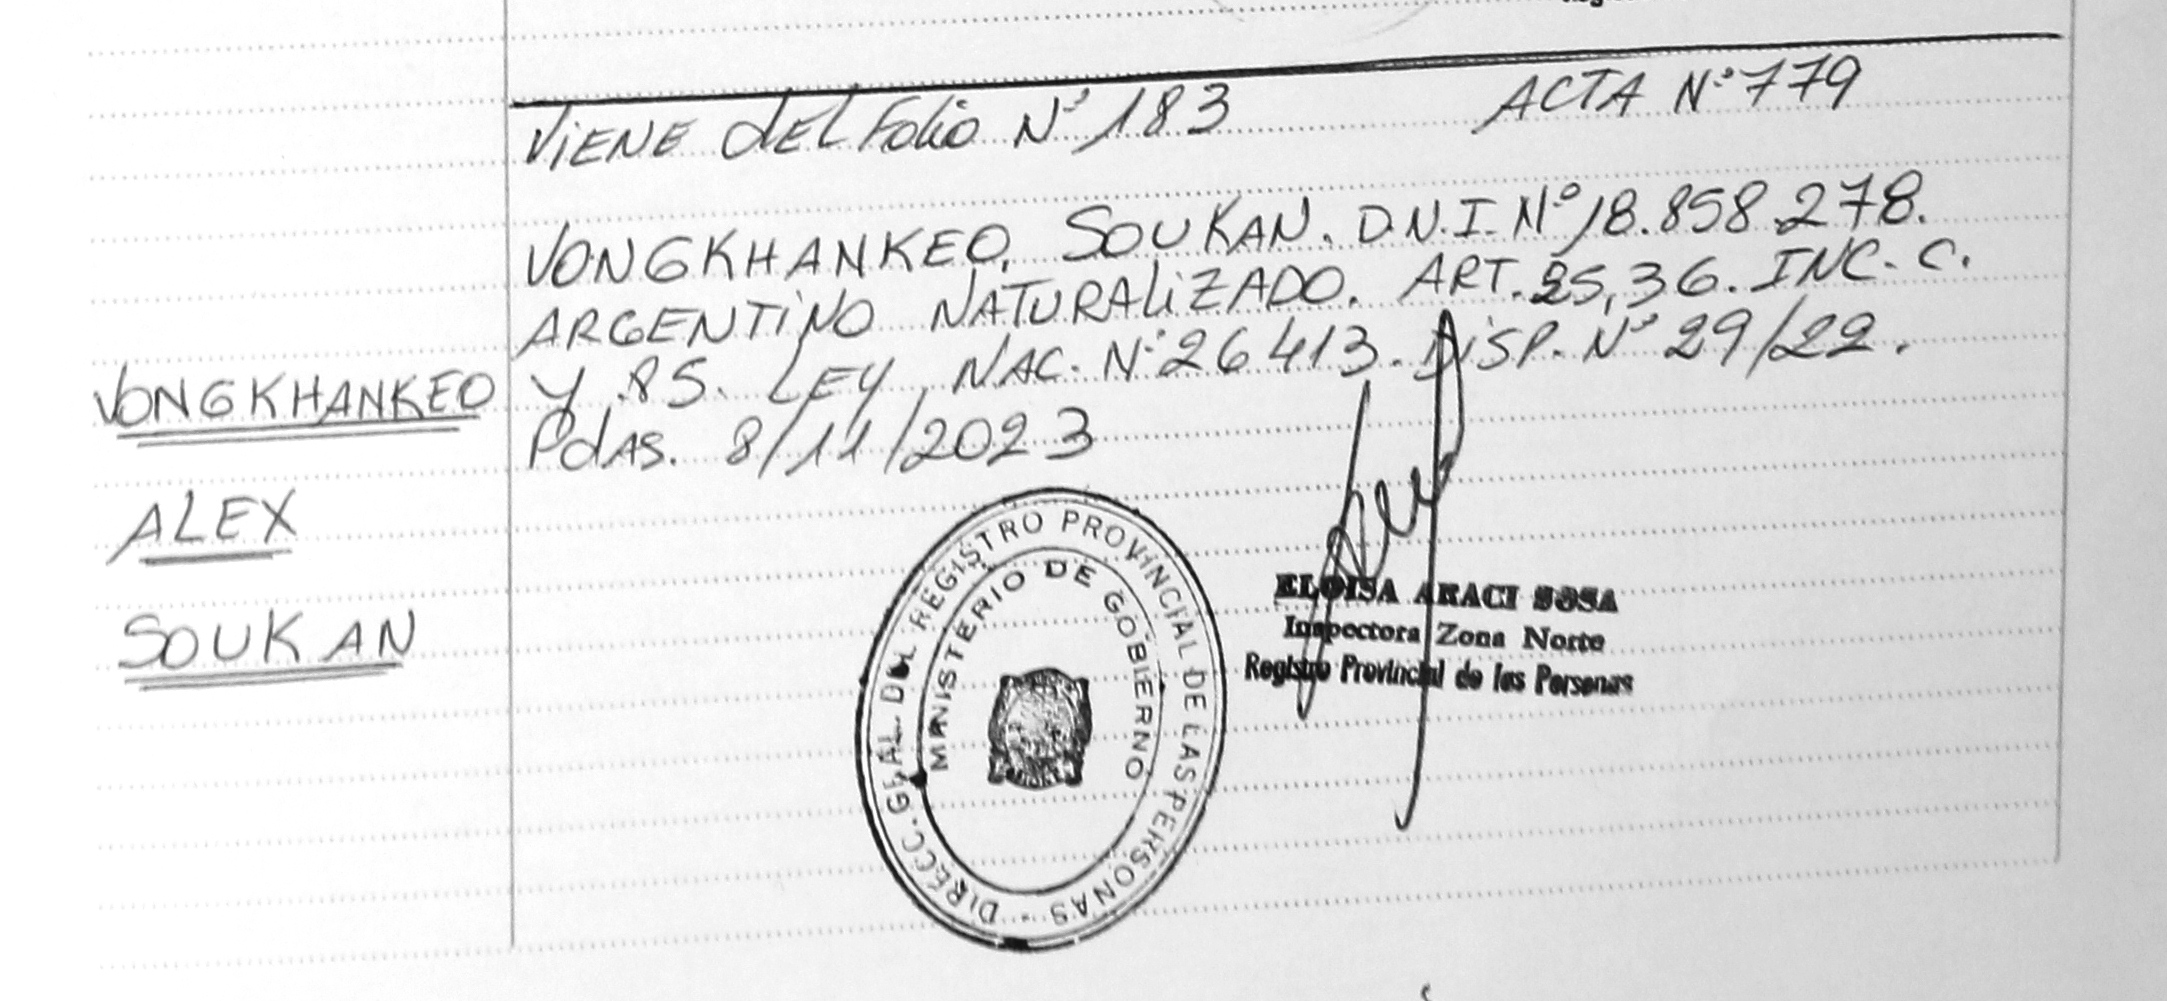 VIENE dEL Folio N° 183 ACTA N° 779
VONGKHANKEO, SOUKAN. D.N.I. N° 18.858.278.
ARGENTINO NATURALIZADO. ART. 25,36. INC. C.
Y 85. LEY. NAC. N° 26413. DISP. N° 29/22.
PdAS. 8/11/2023
VONGKHANKEO
ALEX
SOUKAN
DIRECC. GRAL. DEL REGISTRO PROVINCIAL DE LAS PERSONAS -
MINISTERIO DE GOBIERNO
ELOISA ARACI SOSA
Inspectora Zona Norte
Registro Provincial de las Personas